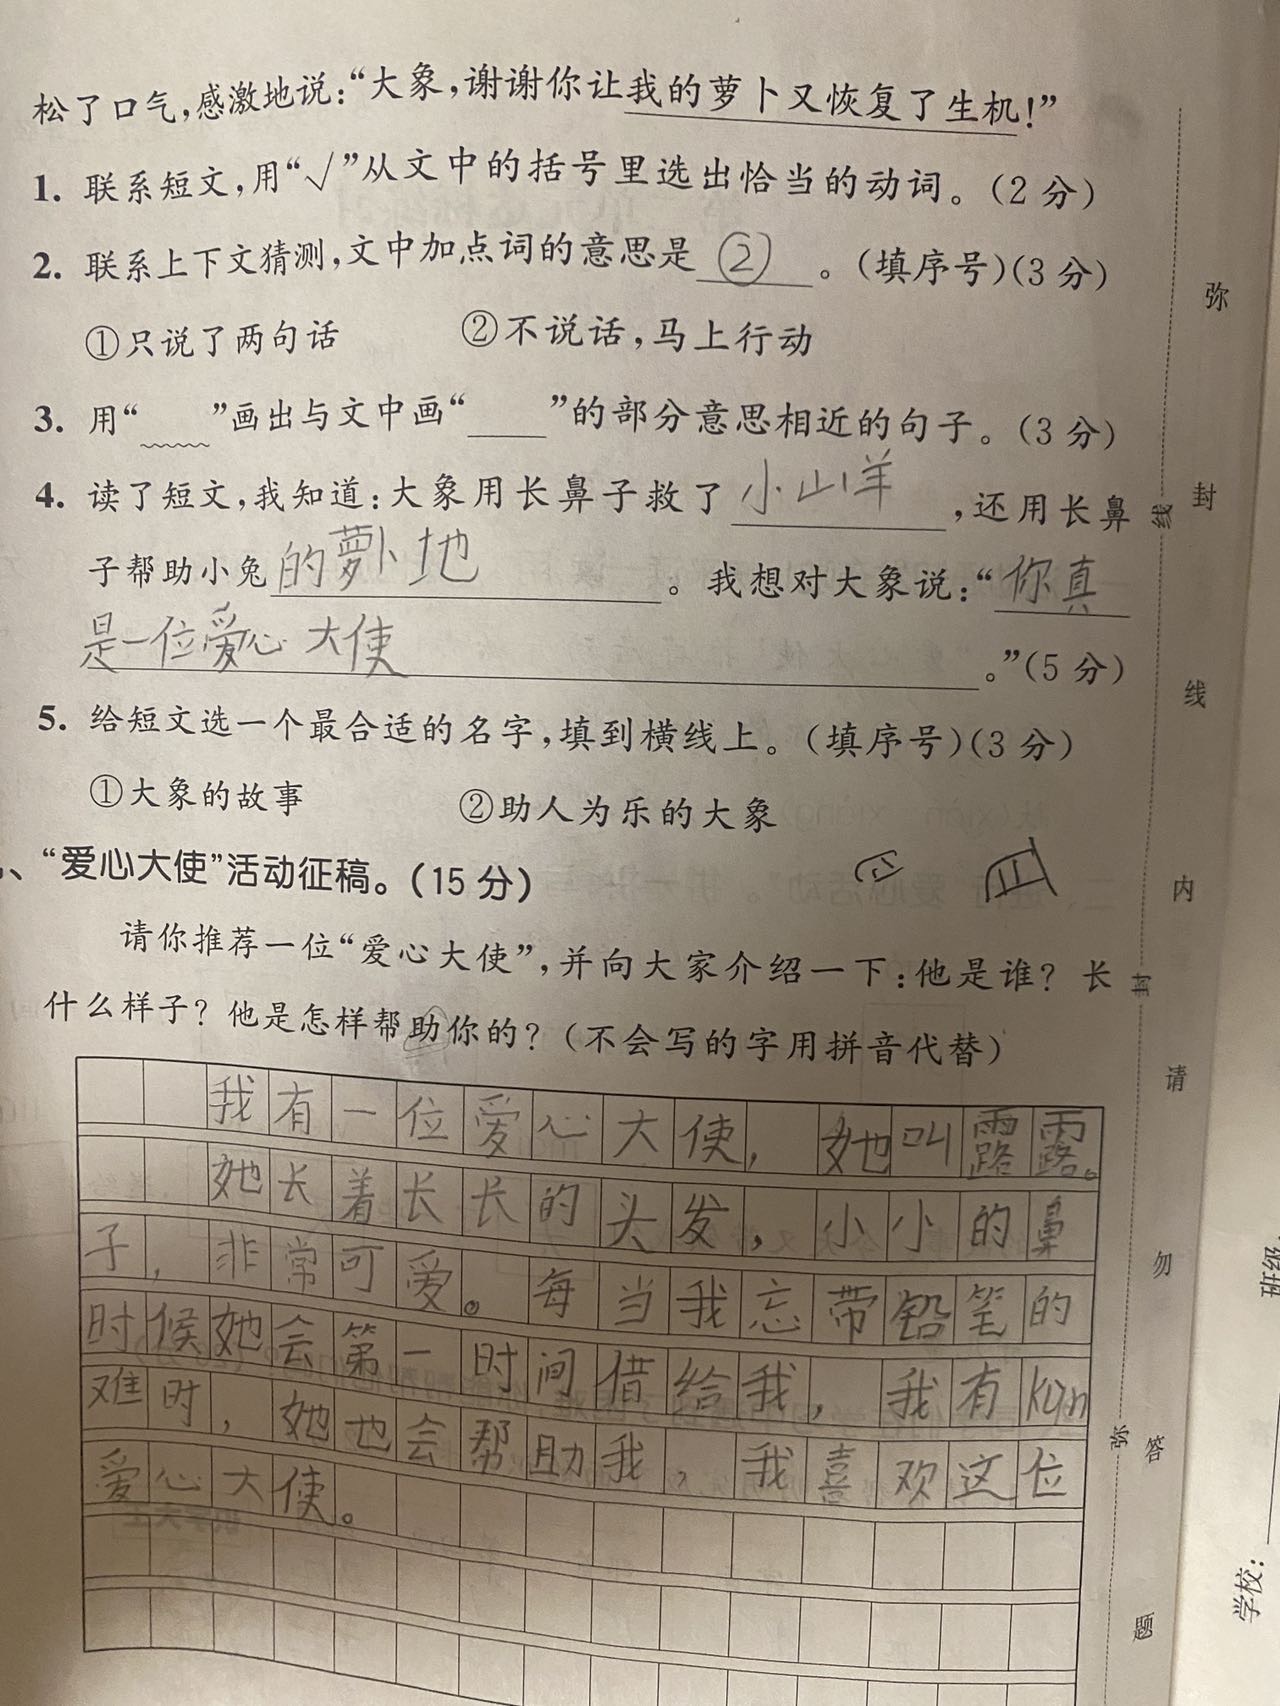 松了口气,感激地说:“大象,谢谢你让我的萝卜又恢复了生机!”
1. 联系短文,用“√”从文中的括号里选出恰当的动词。(2分)
2. 联系上下文猜测,文中加点词的意思是 ② 。(填序号)(3分)
①只说了两句话 ②不说话,马上行动
3. 用“﹏﹏”画出与文中画“___”的部分意思相近的句子。(3分)
4. 读了短文,我知道:大象用长鼻子救了 小山羊 ,还用长鼻
子帮助小兔 的萝卜地 。我想对大象说:“ 你真
是一位爱心大使 。”(5分)
5. 给短文选一个最合适的名字,填到横线上。(填序号)(3分)
①大象的故事 ②助人为乐的大象
、“爱心大使”活动征稿。(15分)
请你推荐一位“爱心大使”,并向大家介绍一下:他是谁?长
什么样子?他是怎样帮助你的?(不会写的字用拼音代替)
我有一位爱心大使,她叫露露。
她长着长长的头发,小小的鼻
子,非常可爱。每当我忘带铅笔的
时候她会第一时间借给我,我有kùn
难时,她也会帮助我,我喜欢这位
爱心大使。
弥
封
线
内
请
勿
答
题
线
封
弥
班级
学校: